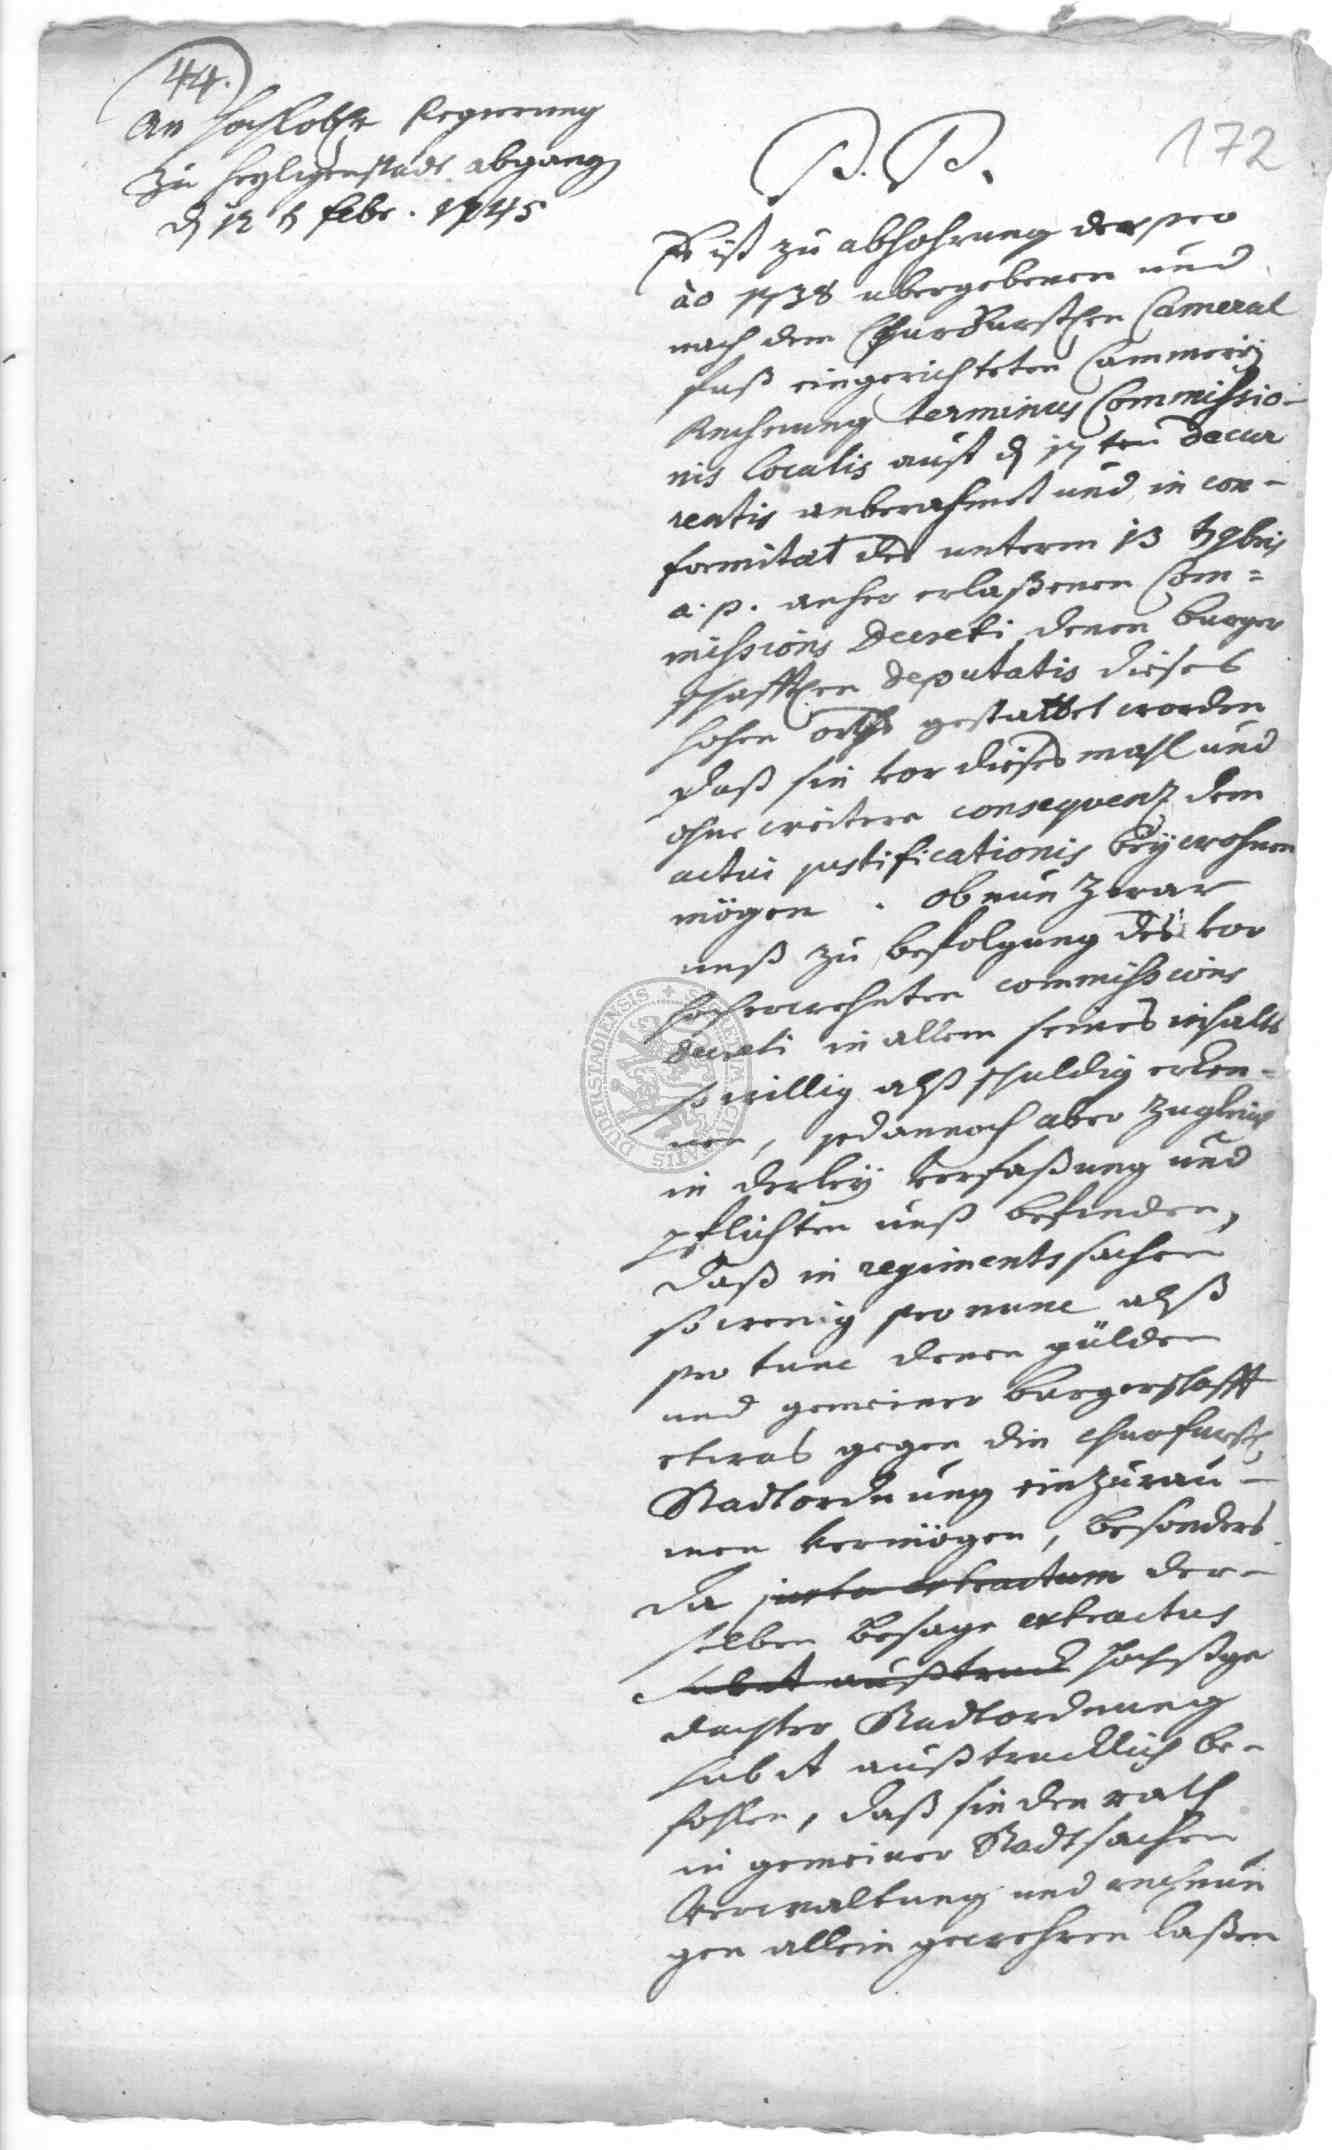 44.
An hochlobl. Regierung
zu Heyligenstadt abgang
d 12 t febr. 1745
172
P. P.
Es ist zu abhohrung der pro
ao 1738 ubergebenen und
nach dem Churfurstlen Cameral
fuß eingerichteten Cammerey
Rechnung terminus Commissio-
nis localis auff d 17 ten decur
rentis anberahmet und in con-
formitat des unterm 13 t 9bris
a. p. anher erlaßenen Com=
missions Decreti denen burger
schafftlen deputatis dieses
hohen orths gestattet worden
daß sie vor dieses mahl und
ohne weitere consequenz dem
actui justificationis beywohnen
mögen. ob nun zwar
unß zu befolgung des vor
hocherwehnten commissions
decreti in allem seines inhalts
so willig alß schuldig erken-
nen, jedannoch aber zugleich
in derley verfaßung und
pflichten unß befinden,
daß in regiments sachen
so wenig pro nunc alß
pro tunc denen gülden
und gemeiner burgerschafft
etwas gegen die churfurstl
Stadtordnung einzurau-
men vermögen, besonders
da juxta extractum der-
selben besage extractus
sub A außtruck hochstge
dachter Stadtordnung
sub A außtrucklich be-
fohlen, daß sie den rath
in gemeiner Stadtsachen
verwaltung und rechnun
gen allein gewehren laßen
SIGILLUM CIVITATIS DUDERSTADIENSIS